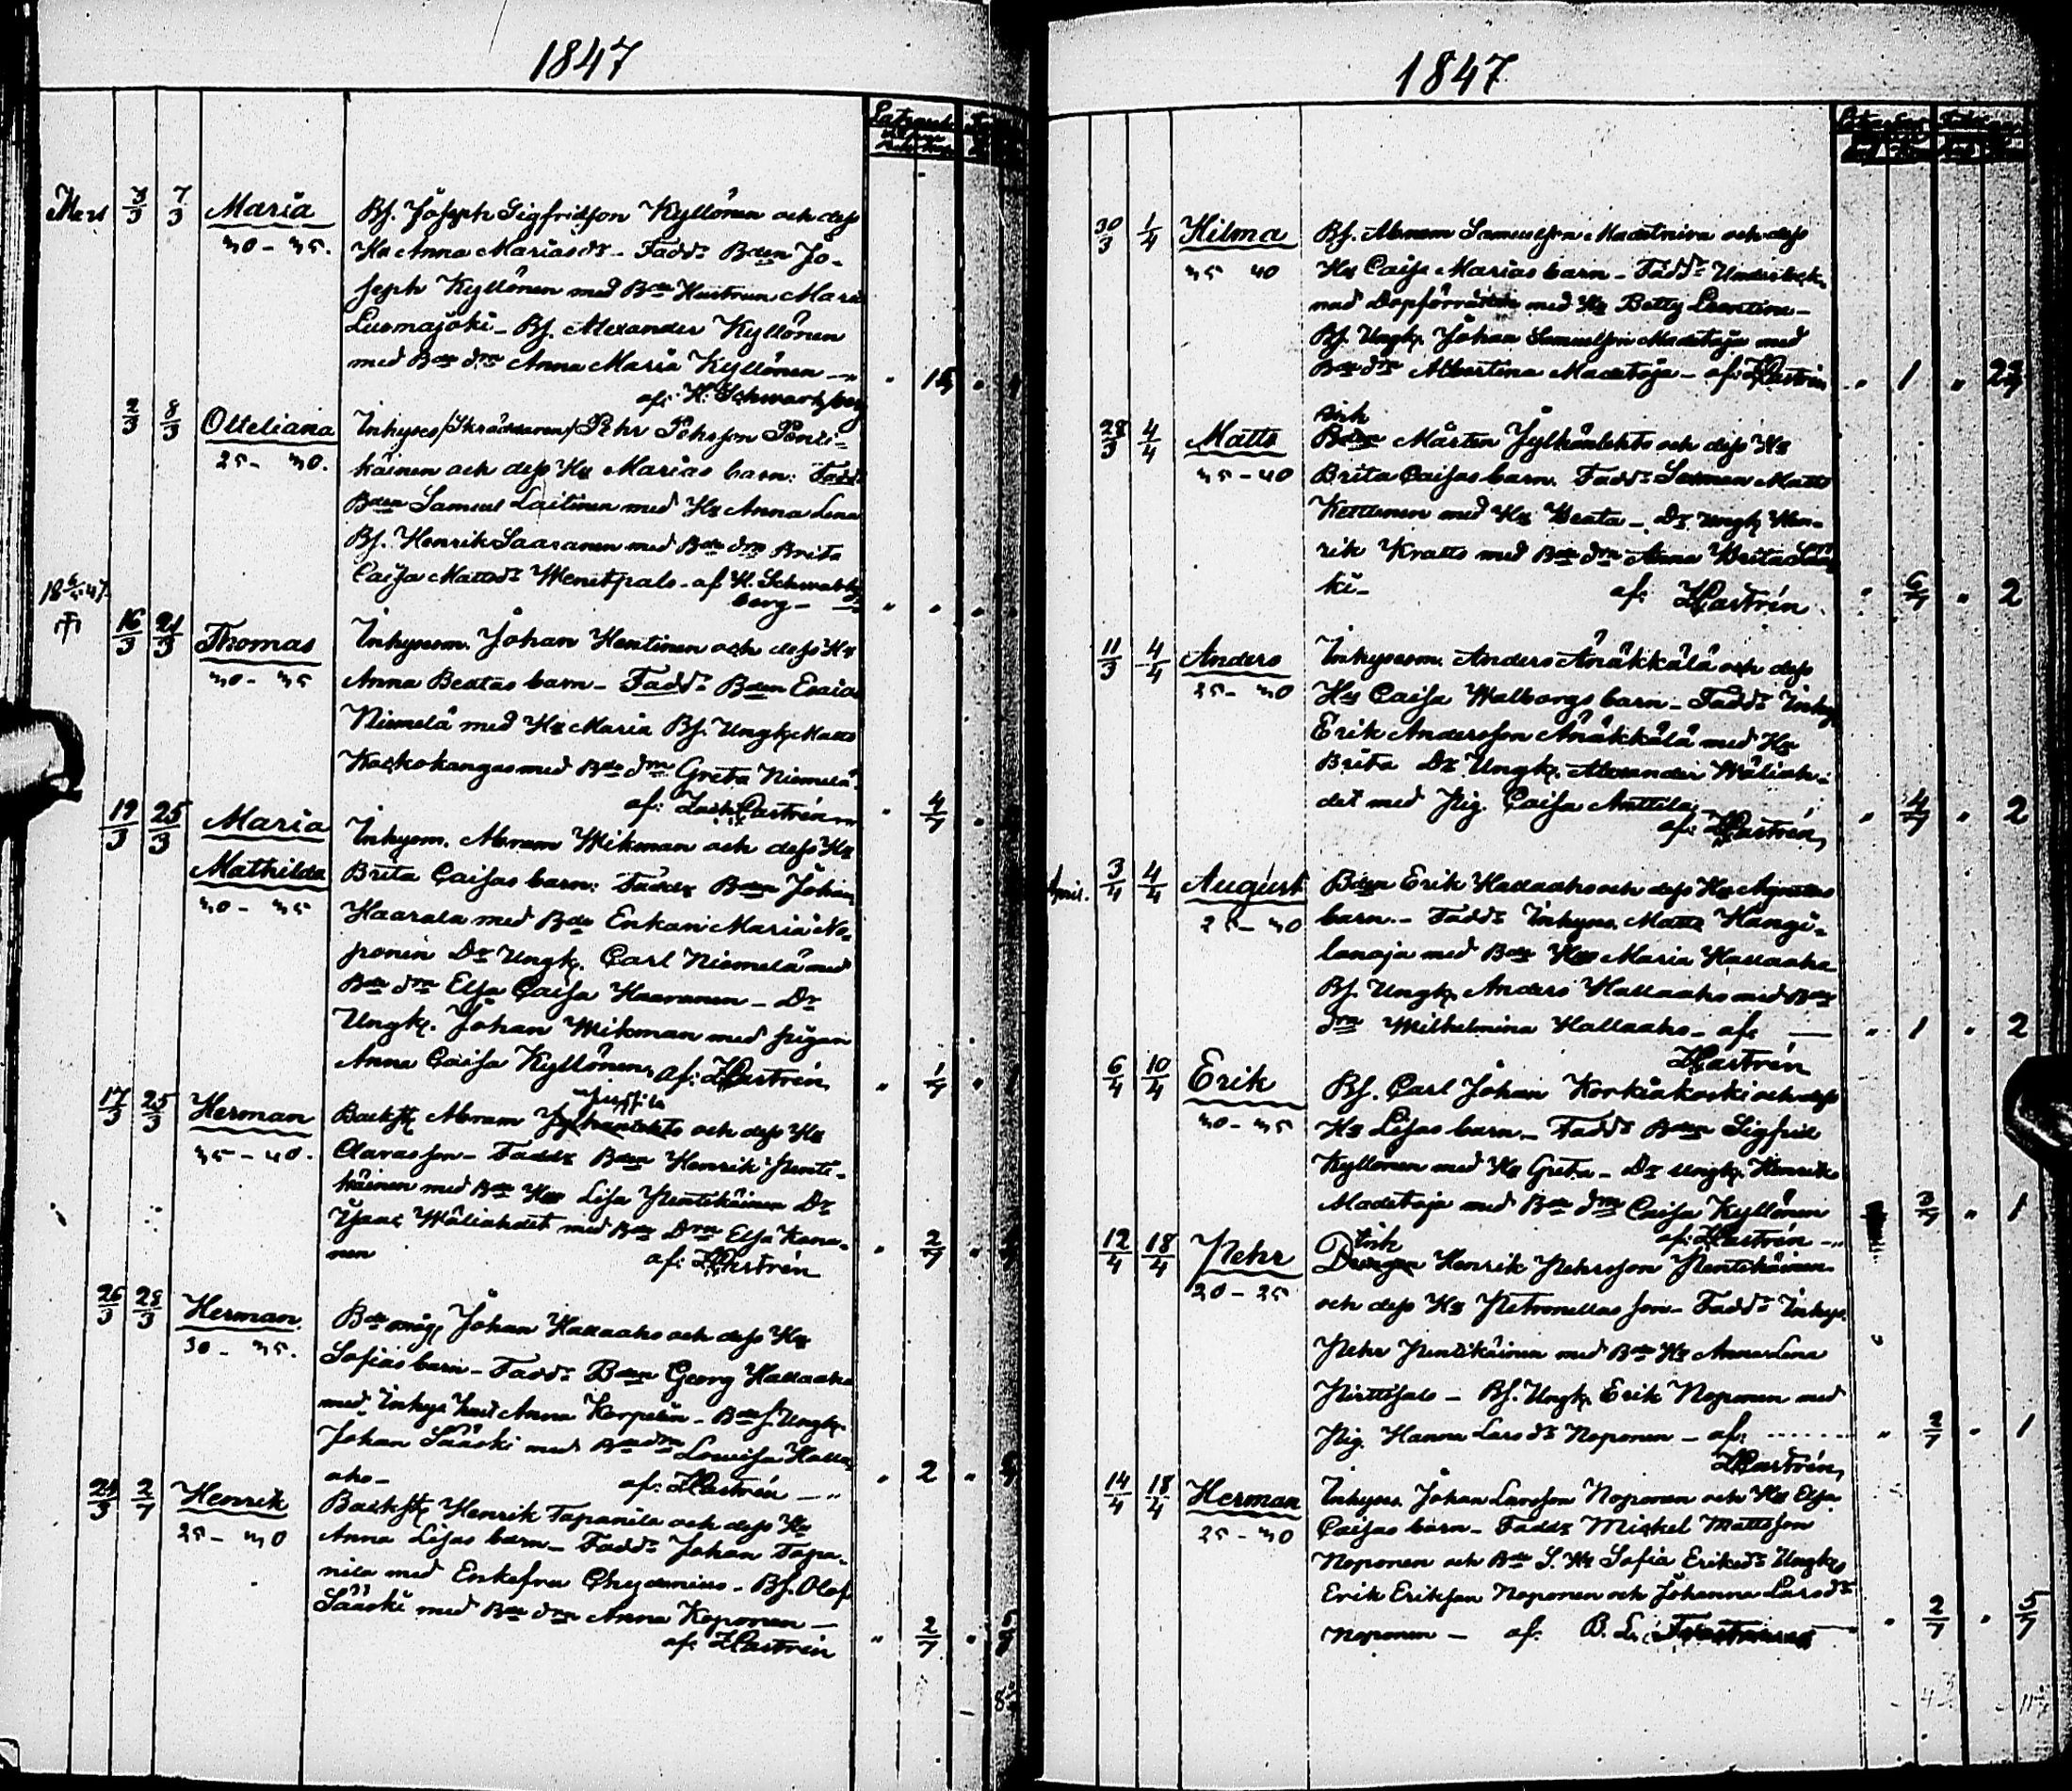 1847
Mars 3/3 7/3 Maria Bs. Joseph Sigfridson Kyllönen och dess
30 - 35. Hu Anna Marias dr - Fadd: Bden Jo-
seph Kyllönen med Bde Hustrun Maria
Luomajoki - Bs. Alexander Kyllönen
med Bde drn Anna Maria Kyllönen
af: H. Schwartzberg
2/3 8/3 Otteliana Inhyses/Skräddaren/ Pehr Pehrsson Penti-
25 - 30. käinen och dess Hu Marias barn: Fadd:
Bden Samuel Laitinen med Hu Anna Lena
Bs. Henrik Saaranen med Bde drn Brita
Caisa Mattsdr Wenetpalo - af H. Schwartz-
berg -
16/3 21/3 Thomas Inhysesm. Johan Hentinen och dess Hu
30 - 35 Anna Beatas barn - Fadd: Bden Esaias
Niemelä med Hu Maria Bs. Ungk. Matts
Koskokangas med Bde drn Greta Niemelä
af: Zach. Castrén 4/7
19/3 25/3 Maria Inhysm. Abram Wikman och dess Hu
Mathilda Brita Caisas barn: Fadd: Bden Johan
30 - 35 Haarala med Bde Enkan Maria No-
ponen Dr Ungk. Carl Niemelä med
Bde drn Elsa Caisa Haaranen - Dr
Ungk. Johan Wikman med pigan
Anna Caisa Kyllönen, af: ZCastrén 1/7
17/3 25/3 Herman Backst. Abram Jylhänlehto och dess Hu
35 - 40. Claras son - Fadd: Bden Henrik Penti-
käinen med Bde Hu Lisa Pentikäinen Dr
Isaac Wäliahdet med Bde Drn Elsa Kana-
nen af: ZCastrén 2/7
26/3 28/3 Herman Bde måg, Johan Hallaaho och dess Hu
30 - 35. Sofias barn - Fadd: Bden Georg Hallaaho
med Inhys Hust Anna Korpelin - Bde s. Ungk.
Johan Sääski med Bde drn Lowisa Halla-
aho - af: ZCastrén 2
Henrik Backst. Henrik Tapanila och dess Hu
25 - 30 Anna Lisas barn - Fadd: Johan Tapa-
nila med Enkefru Chydenius - Bs. Olof
Sääski med Bde drn Anna Koponen -
af: ZCastrén 2/7
1847
30/3 1/4 Hilma Bs. Abram Samuelson Madetniva och dess
35 40 Hu Caisa Marias barn - Fadd: Underteck-
nad Dopförrättare med Hu Betty Leontine -
Bs. Ungk. Johan Samuelson Madetoja med
Bde drn Albertina Madetoja - af: ZCastrén 1
28/3 4/4 Matts Bden Mårten Jylhänlehto och dess Hu
35 - 40 Brita Caisas barn. Fadd: Matts
Kettunen med Hu Beata - Dr Ungk Hen-
rik Kratts med Bde drn Anna Brita Sääs-
ki - af: ZCastrén 6/7 2
11/3 4/4 Anders Inhysesm. Anders Änäkkälä och dess
25 - 30 Hu Caisa Walborgs barn - Fadd: Inhys
Erik Andersson Änäkkälä med Hu
Brita Dr Ungk. Alexander Wäliah-
det med Pig. Caisa Anttila
af: ZCastrén 4/7 2
April. 3/4 4/4 August Bden Erik Hallaaho och dess Hu Agnetas
25 - 30 barn. - Fadd: Inhyses Matts Kangi-
lanoja med Bde Hu Maria Hallaaho
Bs. Ungk. Anders Hallaaho med Bde
drn Wilhelmina Hallaaho - af: 1 2
ZCastrén
6/4 10/4 Erik Bs. Carl Johan Korkiakoski och dess
30 - 35 Hu Lisas barn - Fadd: Bden Sigfrid
Kyllönen med Hu Greta - Dr Ungk. Henrik
Madetoja med Bde drn Caisa Kyllönen 1
af: ZCastrén
12/4 18/4 Pehr Drengen Henrik Pehrsson Pentikäinen
20 - 25 och dess Hu Petronellas son - Fadd: Inhys.
Pehr Pentikäinen med Bde Hu Anna Lena
Pirttisalo - Bs. Ungk. Erik Noponen med
Pig. Hanna Larsdr Noponen - af: 2/7 1
ZCastrén
14/4 18/4 Herman Inhyses Johan Larsson Noponen och Hu Elsa
25 - 30 Caisas barn - Fadd: Mickel Mattsson
Noponen och Bde S. Hu Sofia Eriksdr Ungk.
Erik Erikson Noponen och Johanna Larsdr
Noponen - af: B. L. 2/7 5/7